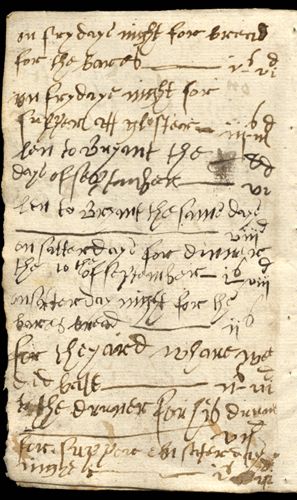 on frydaye night for bread
for the bares ij s vj d
on frydaye night for
supper att gloster iij s
len to Bryant the
daye of september vj d
len to Bryant the same daye
viij d
on satterdaye for dinner
the 10 th of september ij s viij d
on satterday night for the
bares bread ij s
for the yard whare we
ded bait
to the drumer for his drum
vj d
for supper on satterday
night